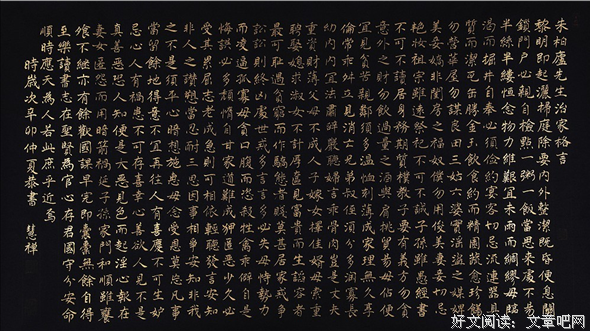 朱柏廬先生治家格言
黎明即起灑掃庭除要內外整潔既昏便息關
鎖門戶必親自檢點一粥一飯當思來處不易
半絲半縷恆念物力維艱宜未雨而綢繆毋臨
渴而掘井自奉必須儉約宴客切忌流連器具
質而潔瓦缶勝金玉飲食約而精園蔬愈珍饈
勿營華屋勿謀良田三姑六婆實淫盜之媒婢
美妾嬌非閨房之福奴僕勿用俊美妻妾切忌
艷妝祖宗雖遠祭祀不可不誠子孫雖愚經書
不可不讀居身務期質樸教子要有義方勿貪
意外之財勿飲過量之酒與肩挑貿易毋佔便
宜見貧苦親鄰須多溫恤刻薄成家理無久享
倫常乖舛立見消亡兄弟叔侄須分多潤寡長
幼內外宜法肅辭嚴聽婦言乖骨肉豈是丈夫
重資財薄父母不成人子嫁女擇佳婿毋索重
聘娶媳求淑女勿計厚奩見富貴而生諂容者
最可恥遇貧窮而作驕態者賤莫甚居家戒爭
訟訟則終凶處世戒多言言多必失毋恃勢力
而凌逼孤寡毋貪口腹而恣殺牲禽乖僻自是
悔誤必多頹惰自甘家道難成狎暱惡少久必
受其累屈志老成急則可相依輕聽發言安知
非人之譖愬當忍耐三思因事相爭安知非我
之不是須平心暗想施惠毋念受恩莫忘凡事
當留餘地得意不宜再往人有喜慶不可生妒
忌心人有禍患不可存喜幸心善欲人見不是
真善惡恐人知便是大惡見色而起淫心報在
妻女匿怨而用暗箭禍延子孫家門和順雖饔
飧不繼亦有餘歡國課早完即囊橐無餘自得
至樂讀書志在聖賢為官心存君國守分安命
順時應天為人若此庶乎近焉
時歲次辛卯仲夏恭書 慧禪
好文阅读:文章吧网